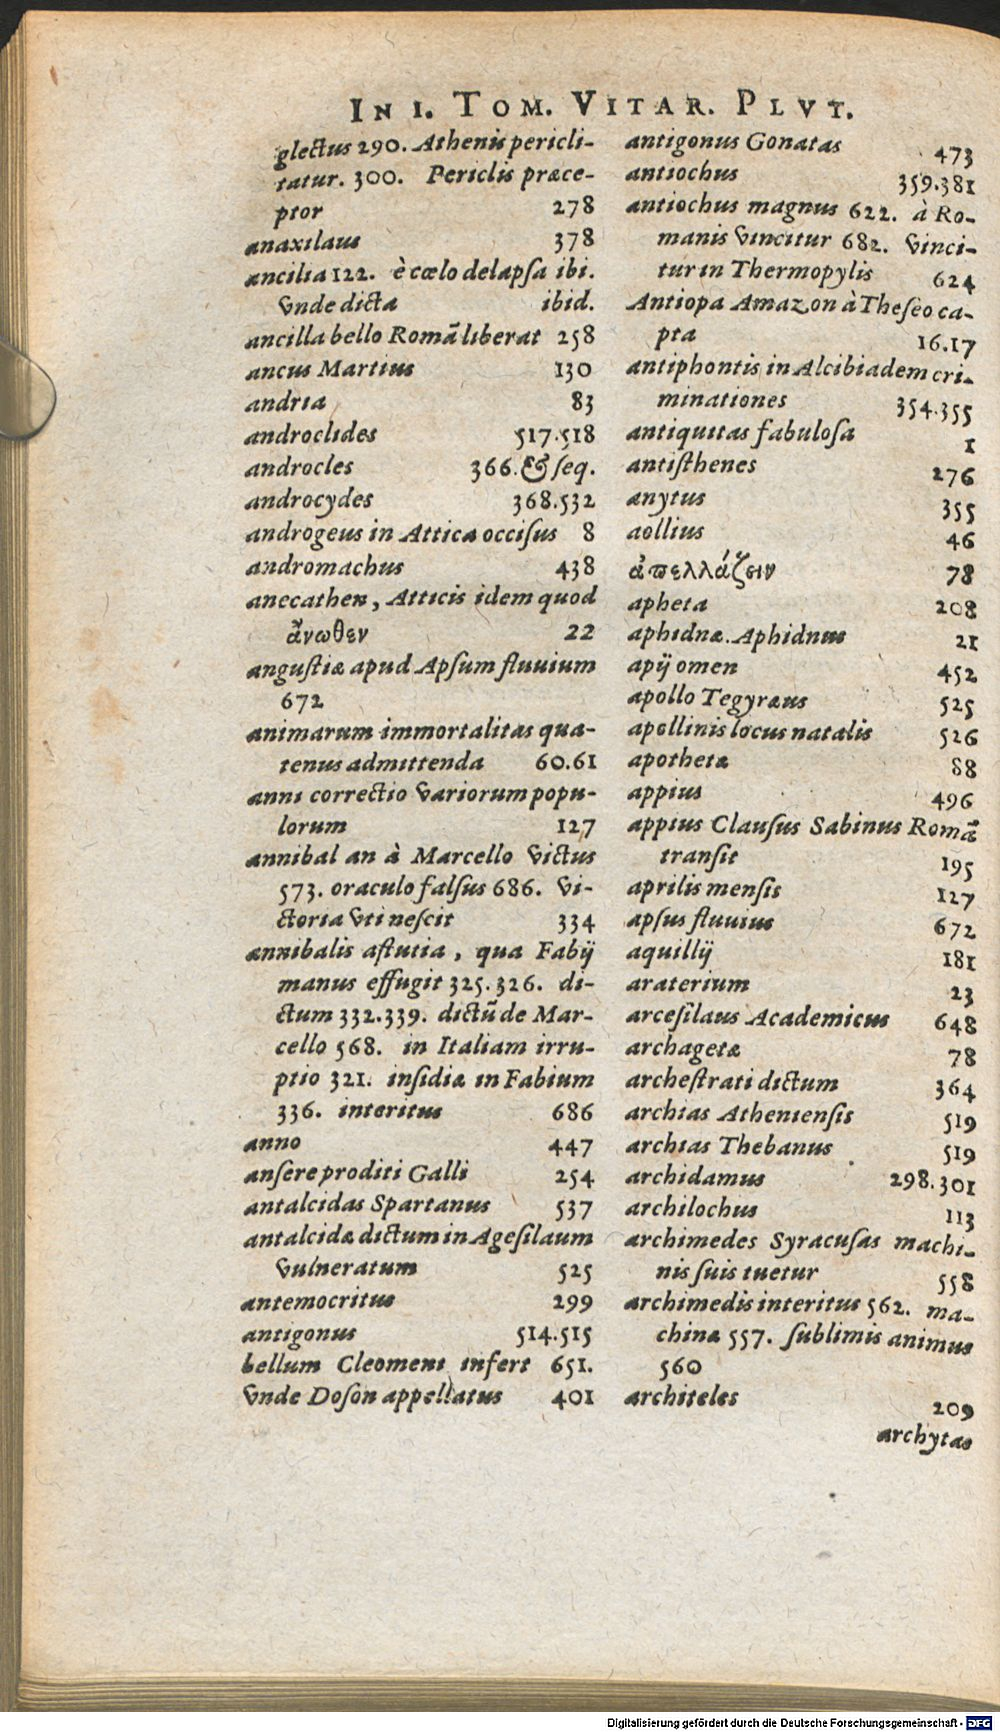 IN I. TOM. VITAR. PLVT.
glectus 290. Athenis pericli-
tatur. 300. Periclis præce-
ptor 278
anaxilaus 378
ancilia 122. è cœlo delapſa ibi.
vnde dicta ibid.
ancilla bello Romā liberat 258
ancus Martius 130
andria 83
androclides 517.518
androcles 366. & ſeq.
androcydes 368.532
androgeus in Attica occiſus 8
andromachus 438
anecathen, Atticis idem quod
ἄνωθεν 22
anguſtiæ apud Apſum fluuium
672
animarum immortalitas qua-
tenus admittenda 60.61
anni correctio variorum popu-
lorum 127
annibal an à Marcello victus
573. oraculo falſus 686. vi-
ctoria vti neſcit 334
annibalis aſtutia, qua Fabij
manus effugit 325.326. di-
ctum 332.339. dictū de Mar-
cello 568. in Italiam irru-
ptio 321. inſidiæ in Fabium
336. interitus 686
anno 447
anſere proditi Galli 254
antalcidas Spartanus 537
antalcidæ dictum in Ageſilaum
vulneratum 525
antemocritus 299
antigonus 514.515
bellum Cleomeni infert 651.
vnde Doſon appellatus 401
antigonus Gonatas 473
antiochus 359.381
antiochus magnus 622. à Ro-
manis vincitur 682. vinci-
tur in Thermopylis 624
Antiopa Amazon à Theſeo ca-
pta 16.17
antiphontis in Alcibiadem cri-
minationes 354.355
antiquitas fabuloſa 1
antiſthenes 276
anytus 355
aollius 46
ἀπελλάζειν 78
apheta 208
aphidnæ. Aphidnus 21
apij omen 452
apollo Tegyræus 525
apollinis locus natalis 526
apothetæ 88
appius 496
appius Clauſus Sabinus Romā
tranſit 195
aprilis menſis 127
apſus fluuius 672
aquillij 181
araterium 23
arceſilaus Academicus 648
archagetæ 78
archeſtrati dictum 364
archias Athenienſis 519
archias Thebanus 519
archidamus 298.301
archilochus 113
archimedes Syracuſas machi-
nis ſuis tuetur 558
archimedis interitus 562. ma-
china 557. ſublimis animus
560
architeles 209
archytas
Digitalisierung gefördert durch die Deutsche Forschungsgemeinschaft - DFG